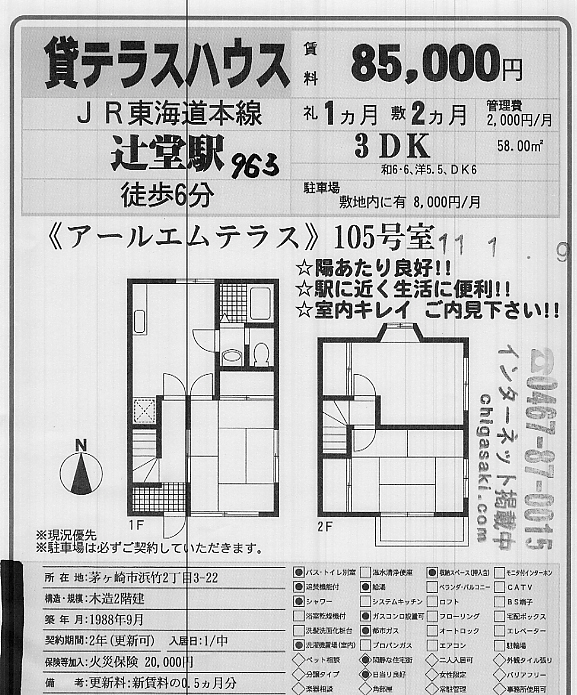 貸テラスハウス
賃料 85,000円
JR東海道本線
礼 1ヵ月 敷 2ヵ月
管理費 2,000円/月
辻堂駅 963
3DK
58.00㎡
和6・6、洋5.5、DK6
徒歩6分
駐車場 敷地内に有 8,000円/月
《アールエムテラス》105号室
11 1 . 9
☆陽あたり良好!!
☆駅に近く生活に便利!!
☆室内キレイ ご内見下さい!!
☎0467-87-0015
インターネット掲載中
chigasaki.com
N
1F
2F
※現況優先
※駐車場は必ずご契約していただきます。
所在地:茅ヶ崎市浜竹2丁目3-22
構造・規模:木造2階建
築年月:1988年9月
契約期間:2年(更新可) 入居日:1/中
保険等加入:火災保険 20,000円
備考:更新料:新賃料の0.5ヵ月分
バス・トイレ別室 温水清浄便座 収納スペース(押入含) モニタ付インターホン
追焚機能付 給湯 ベランダ・バルコニー CATV
シャワー システムキッチン ロフト BS端子
浴室乾燥機付 ガスコンロ設置可 フローリング 宅配ボックス
洗髪洗面化粧台 都市ガス オートロック エレベーター
洗濯機置場(室内) プロパンガス エアコン 駐輪場
ペット相談 閑静な住宅街 二人入居可 外観タイル張り
分譲タイプ 日当り良好 女性限定 バリアフリー
楽器相談 角部屋 常駐管理 事務所使用可